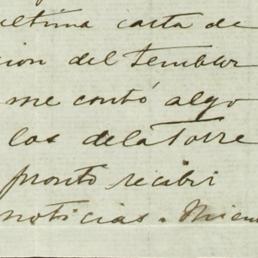 ultima carta de
cion del temblor
me contó algo
los de la Torre
pronto recibir
noticias.